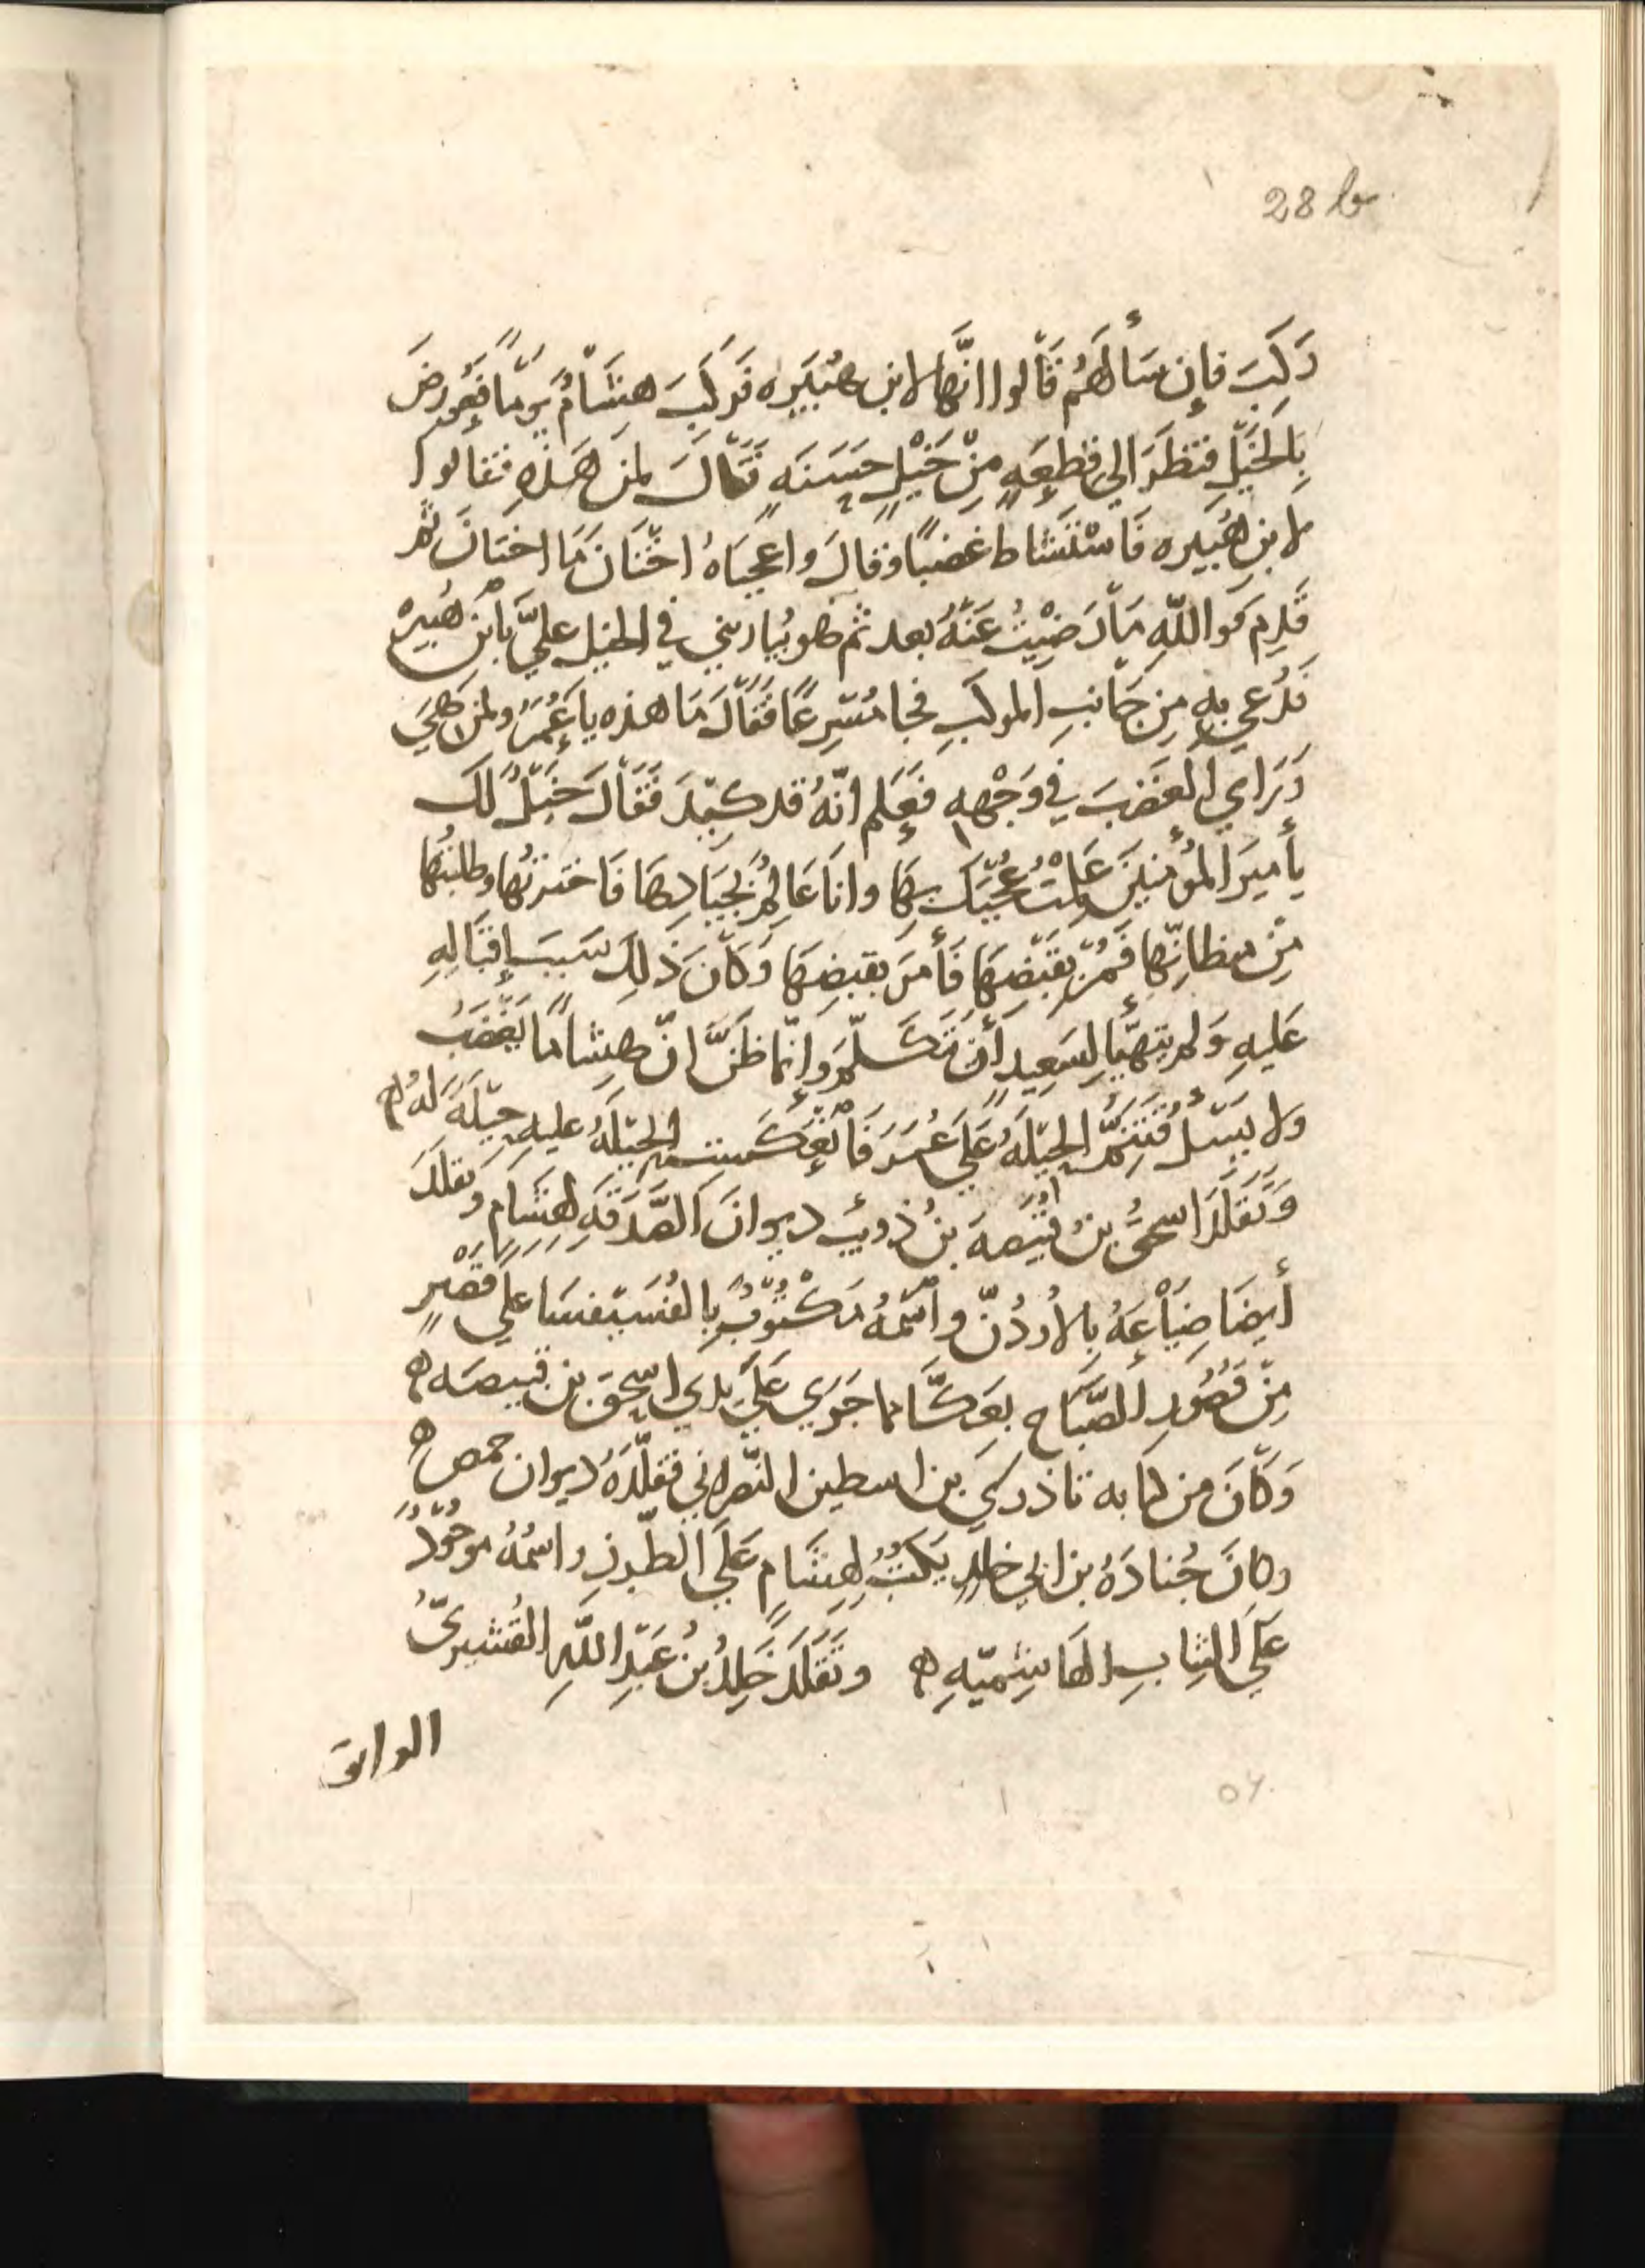 28 b
رَكِبَ فإن سَألهُم قَالوا انَّها لابن هُبَيره فَركِبَ هِشَامٌ يومًا فعُورِضَ
بِالخَيْلِ فنظَرَ الي قطعَهٍ مِنْ خَيْلٍ حسَنَهٍ فَقَالَ لمن هَذهِ فقالوا
لابنِ هُبَيره فَاسْتَشاط غضبًا وقالَ واعجبَاهُ اخْتَانَ مَا اختانَ ثمّ
قَدِم فَواللّهِ مَا رَضِيْتُ عَنْهُ بعد ثم هو يُباريني في الخيل عليَّ بابْنِ هُبَيرهْ
فَدُعي بهِ مِن جَانبِ الموكَبِ فجا مُسْرِعًا فَقَالَ مَا هذه يا عُمَرُ ولمن هِيَ
وَرَاي الغَضبَ في وَجْهِهِ فعَلِم انّهُ قد كِيْدَ فَقَالَ خَيْلٌ لَكَ
يأميرَ المؤمنيْنَ عَلِمْتُ عُجْبَك بِهَا وانَا عَالِمٌ بِجيَادِهَا فَاخترتُها وطلبتُها
مِنْ مظانِّها فَمُرْ بقَبْضِهَا فَأمَرَ بقبضِهَا وَكانَ ذَلِكَ سَببَ إقبَالِهِ
عَليهِ وَلم يتهيَّا لِسَعِيدٍ أن يتَكَلّمَ وَإنّما ظنَّ انّ هِشامًا يَغْضَبُ
ولا يَسْئَلُ فَتَتِمُّ الحِيْلَهُ عَلَي عُمَرَ فَانْعَكَسَتِ الحِيْلَهُ عليهِ حِيْلَهً لَهُ ه
وَتَقَلَّدَ اسحقُ بنُ قبيْصهَ بنُ ذويب ديوانَ الصَّدَقَهِ لهِشَامٍ وتقلّدَ
أيضَا ضِيَاعَهُ بالأردُنّ واسْمُهُ مَكْتُوْبٌ بِالفُسَيْفسَا علي قَصْرٍ
مِنْ قصُورِ الصَّبَاحِ بِعَكَّا مما جَرَي عَلَي يدي اسحقَ بن قبيصَه ه
وَكانَ من كتابه تاذري بن اسطين النّصراني فقلّدَهُ ديوان حمص ه
وكانَ جُنادَهُ بن ابي خالدٍ يَكتُبُ لهِشَامٍ عَلَي الطّرز واسمُهُ موجُوْدٌ
عَلَي الثيابِ الهَاشِميّهِ ه وتَقَلَّدَ خَالِدُ بنُ عَبْدِ اللّهِ القُشيريّ